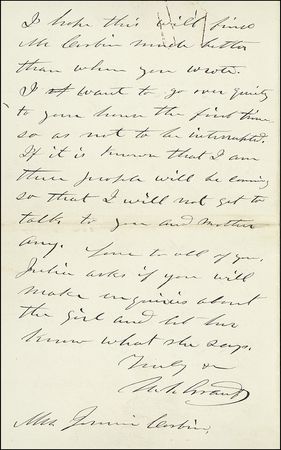 I hope this will find
Mr Corbin much better
than when you wrote.
I want to go over quietly
to your house the first time
so as not to be interrupted.
If it is known that I am
there people will be coming
so that I will not get to
talk to you and Mother
any. Love to all of you.
Julia asks if you will
make inquiries about
the girl and let her
know what she says.
Truly &c
U. S. Grant
Mrs Jennie Corbin,